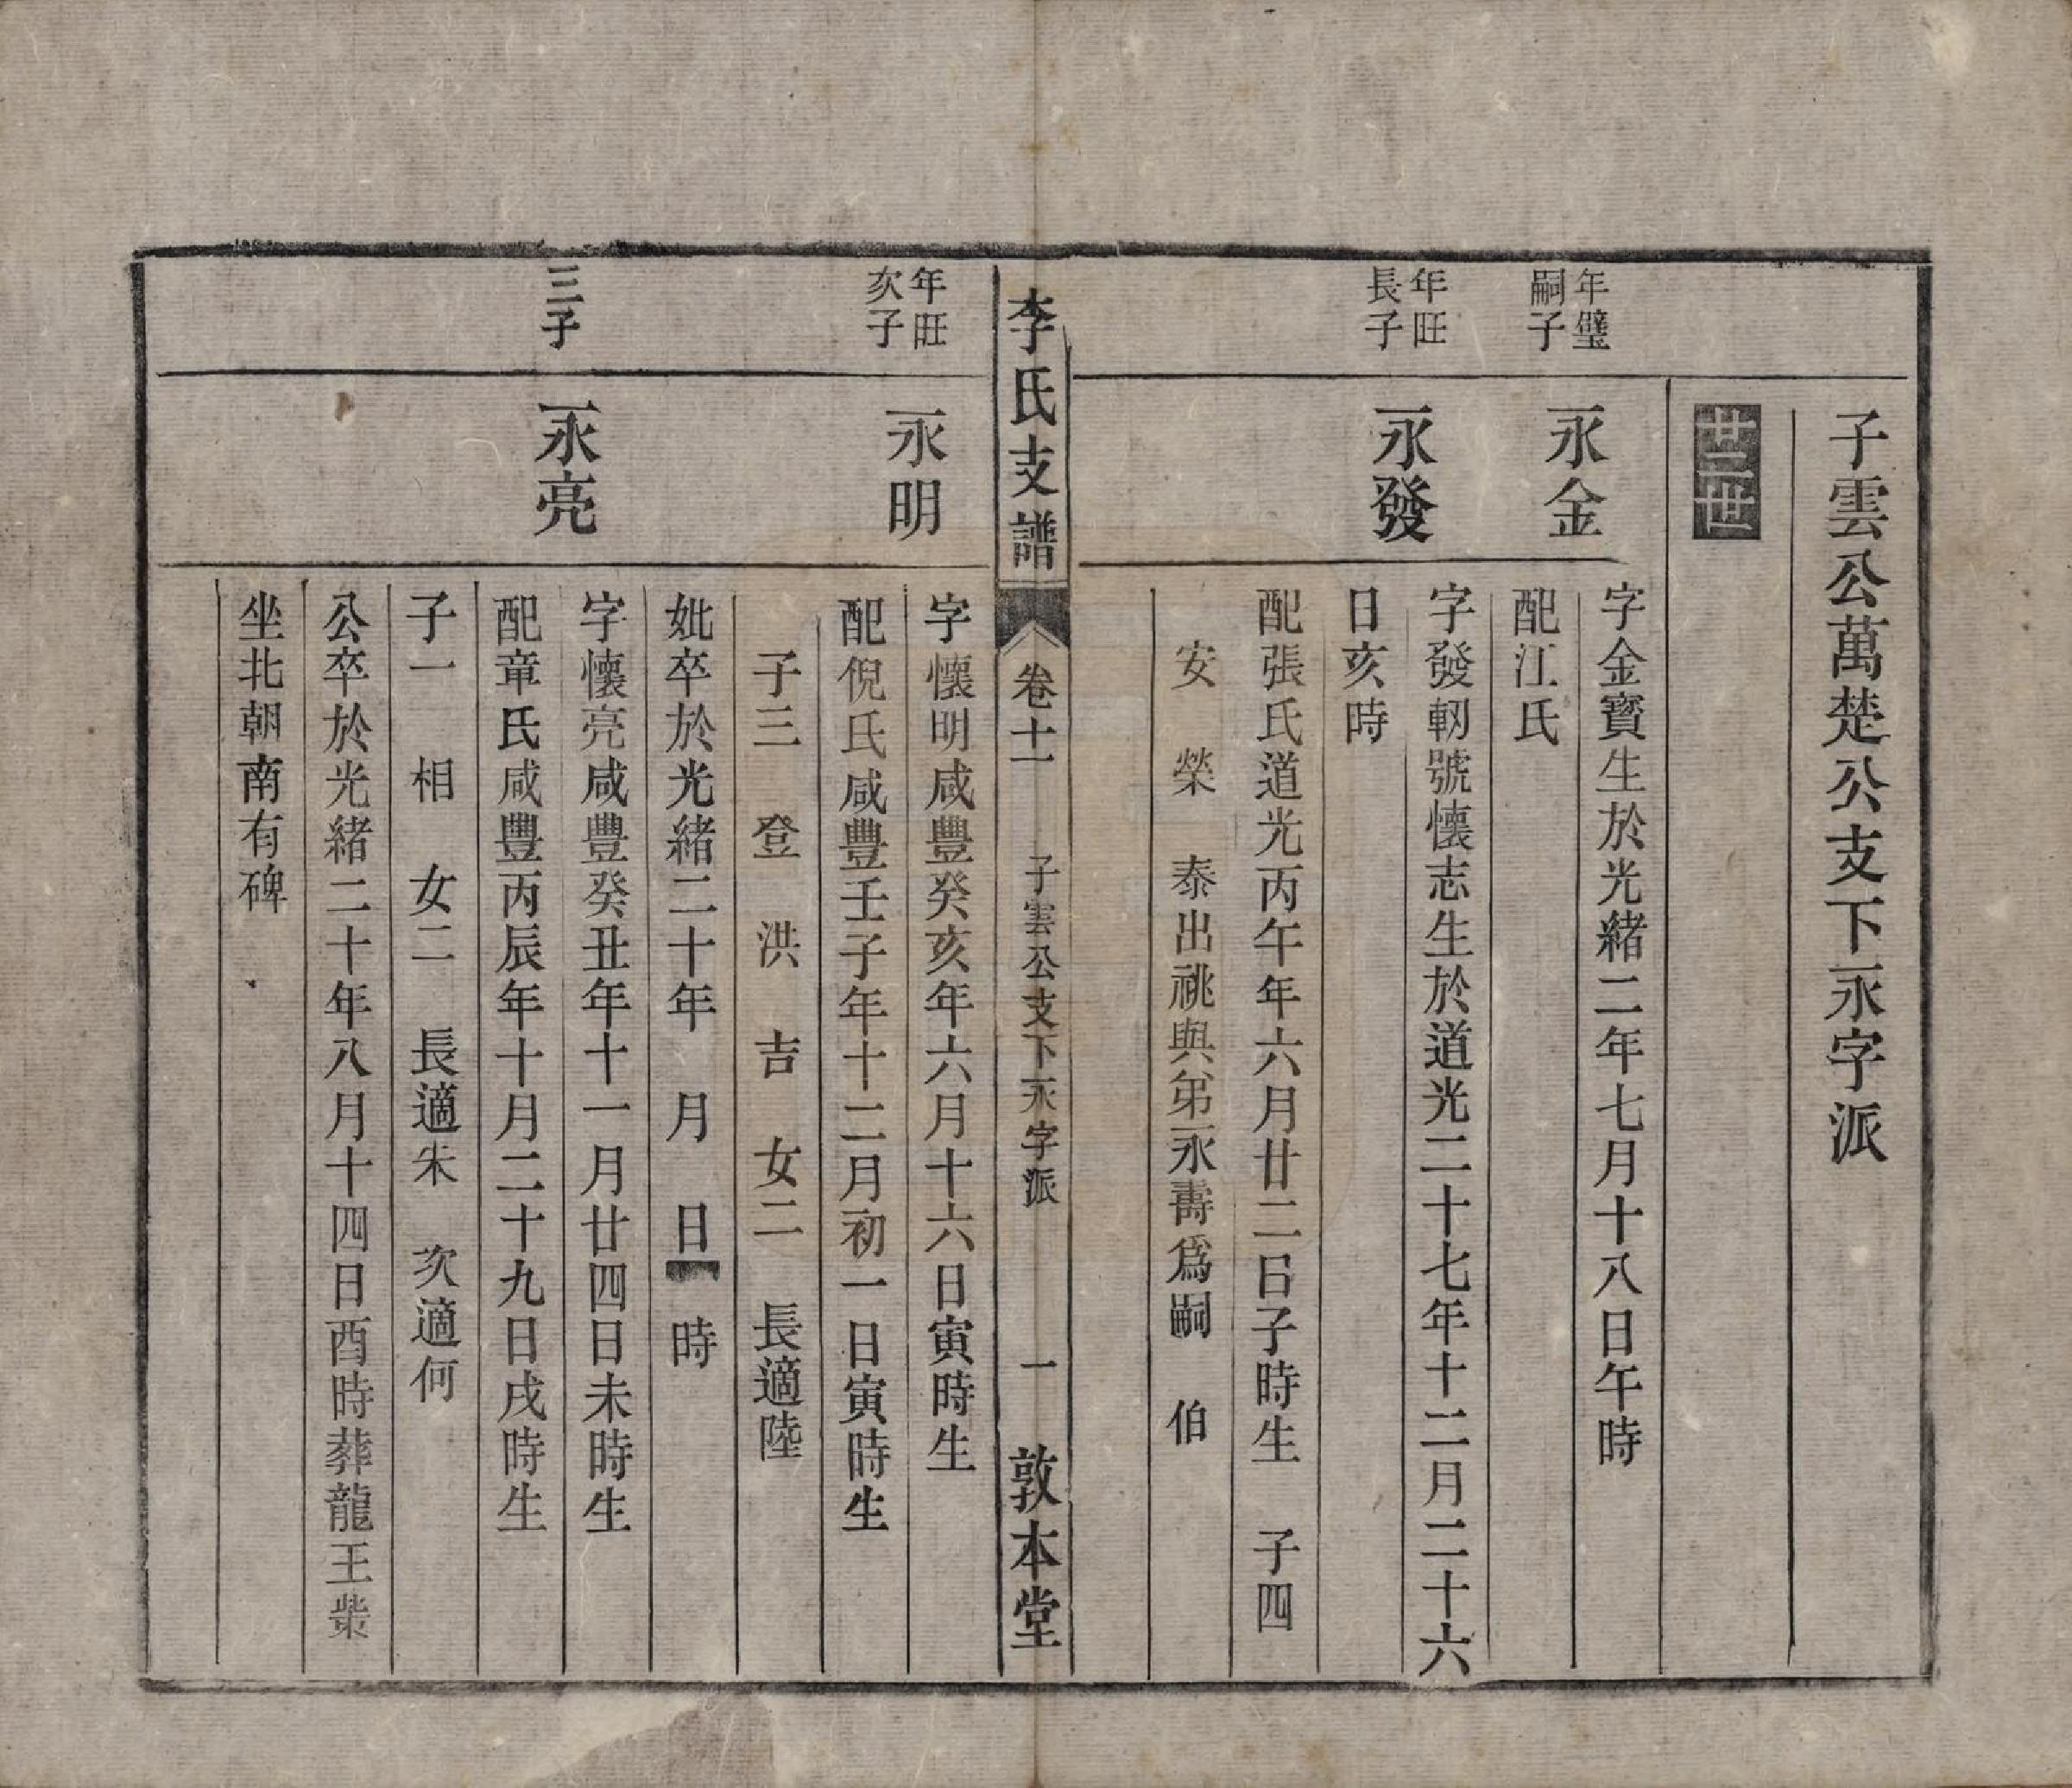 子雲公萬楚公支下永字派
廿二世
年璧
嗣子
永金
字金寶生於光緒二年七月十八日午時
配江氏
年旺
長子
永發
字發軔號懷志生於道光二十七年十二月二十六
日亥時
配張氏道光丙午年六月廿二日子時生 子四
安 榮 泰出祧與弟永壽爲嗣 伯
李氏支譜 卷十一 子雲公支下永字派 一 敦本堂
年旺
次子
永明
字懷明咸豐癸亥年六月十六日寅時生
配倪氏咸豐壬子年十二月初一日寅時生
子三 登 洪 吉 女二 長適陸
妣卒於光緒二十年 月 日 時
三子
永亮
字懷亮咸豐癸丑年十一月廿四日未時生
配章氏咸豐丙辰年十月二十九日戌時生
子一 相 女二 長適朱 次適何
公卒於光緒二十年八月十四日酉時葬龍王
坐北朝南有碑